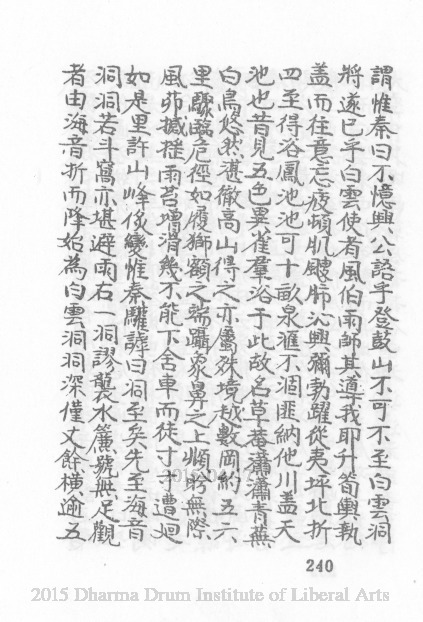 謂惟秦曰不憶興公語乎登鼓山不可不至白雲洞
將遂已乎白雲使者風伯雨師其導我耶升筍輿執
盖而往意忘疲頓肌颼肺沁興彌勃躍從夷坪北折
四至得浴鳳池池可十畝泉滙不涸匪納他川盖天
池也昔見五色異雀羣浴于此故名草菴瀟瀟青蕪
白鳥悠然湛徹高山得之亦屬殊境越數岡約五六
里驟臨危徑如履獅額之端躡象鼻之上順盻無際
風茆撼捶雨苔增滑幾不能下舍車而徒寸寸遭迴
如是里許山峰倏變惟秦驩謼曰洞至矣先至海音
洞洞若斗窩亦堪避雨右一洞謬襲水簾號無足觀
者由海音折而降始為白雲洞洞深僅丈餘橫逾五
240
2015 Dharma Drum Institute of Liberal Arts